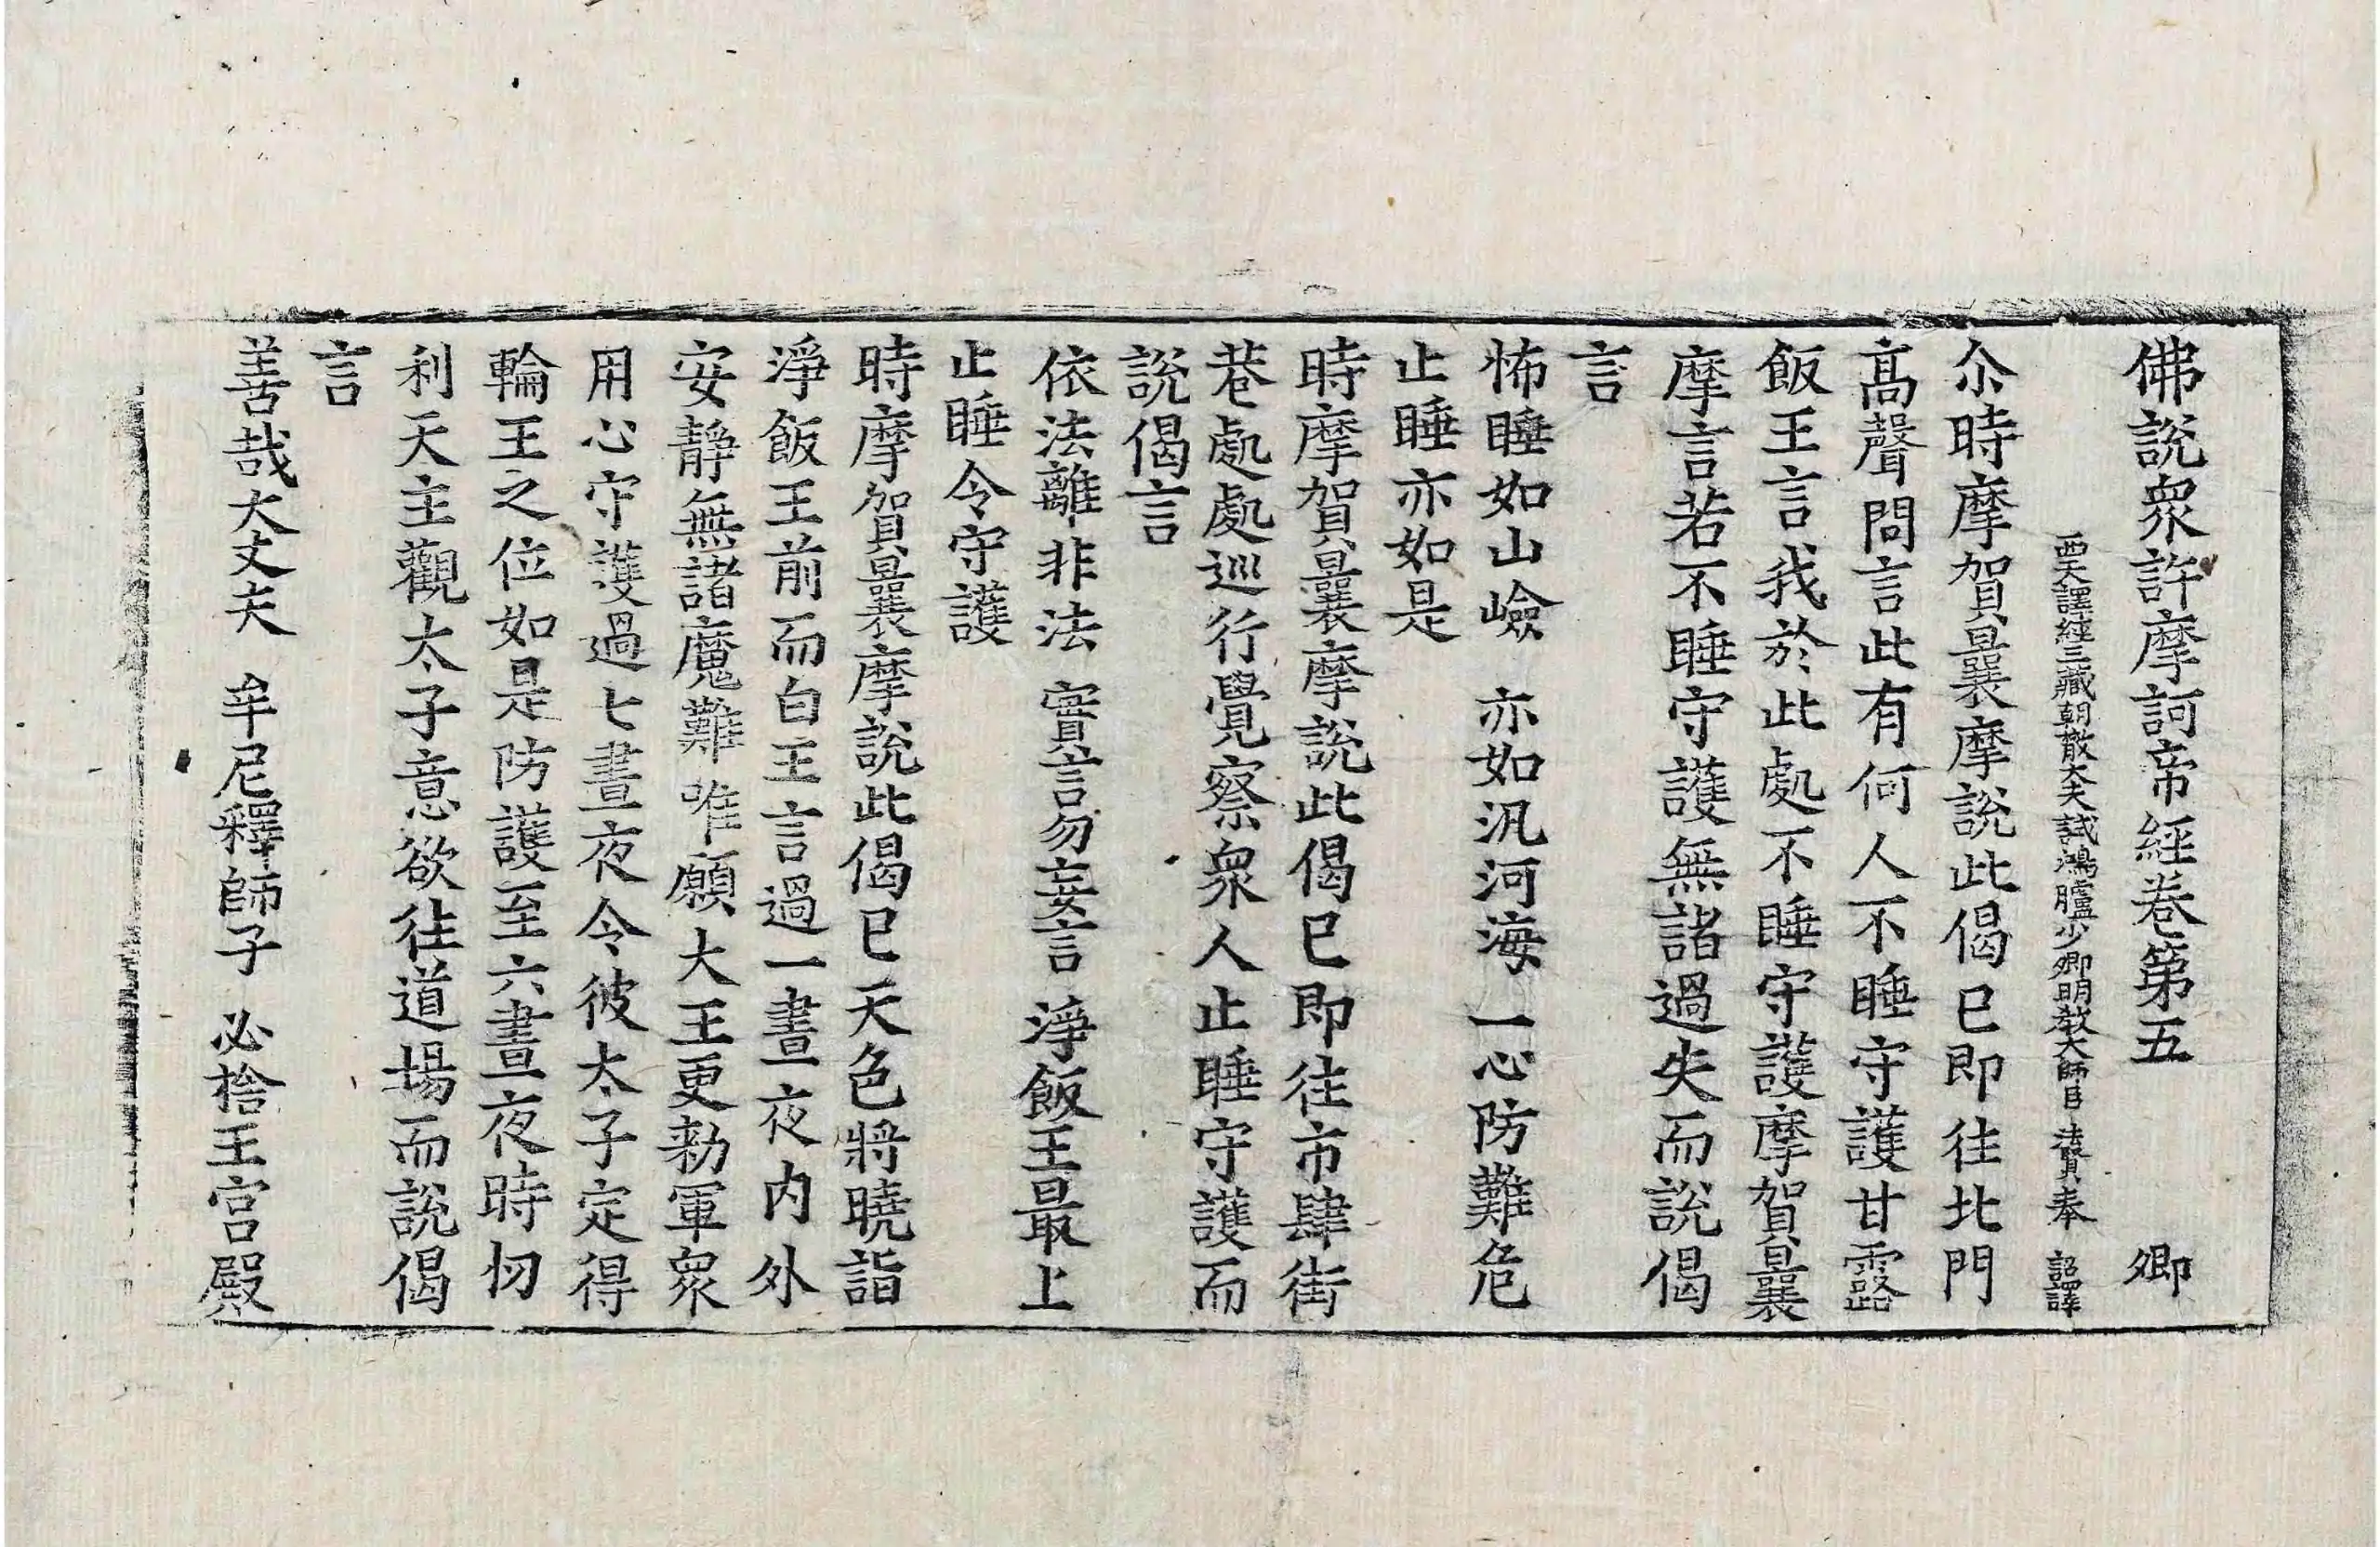 佛說衆許摩訶帝經卷第五 卿
西天譯經三藏朝散大夫試鴻臚少卿明教大師臣 法賢奉 詔譯
尒時摩賀曩摩說此偈已即往北門
髙聲問言此有何人不睡守護甘露
飯王言我於此處不睡守護摩賀曩
摩言若不睡守護無諸過失而說偈
言
怖睡如山嶮 亦如汎河海 一心防難危
止睡亦如是
時摩賀曩摩說此偈已即往市肆街
巷處處巡行覺察衆人止睡守護而
說偈言
依法離非法 實言勿妄言 淨飯王最上
止睡令守護
時摩賀曩摩說此偈已天色將曉詣
淨飯王前而白王言過一晝夜內外
安靜無諸魔難唯願大王更勑軍衆
用心守護過七晝夜令彼太子定得
輪王之位如是防護至六晝夜時忉
利天主觀太子意欲往道場而說偈
言
善哉大丈夫 牟尼釋師子 必捨王宮殿